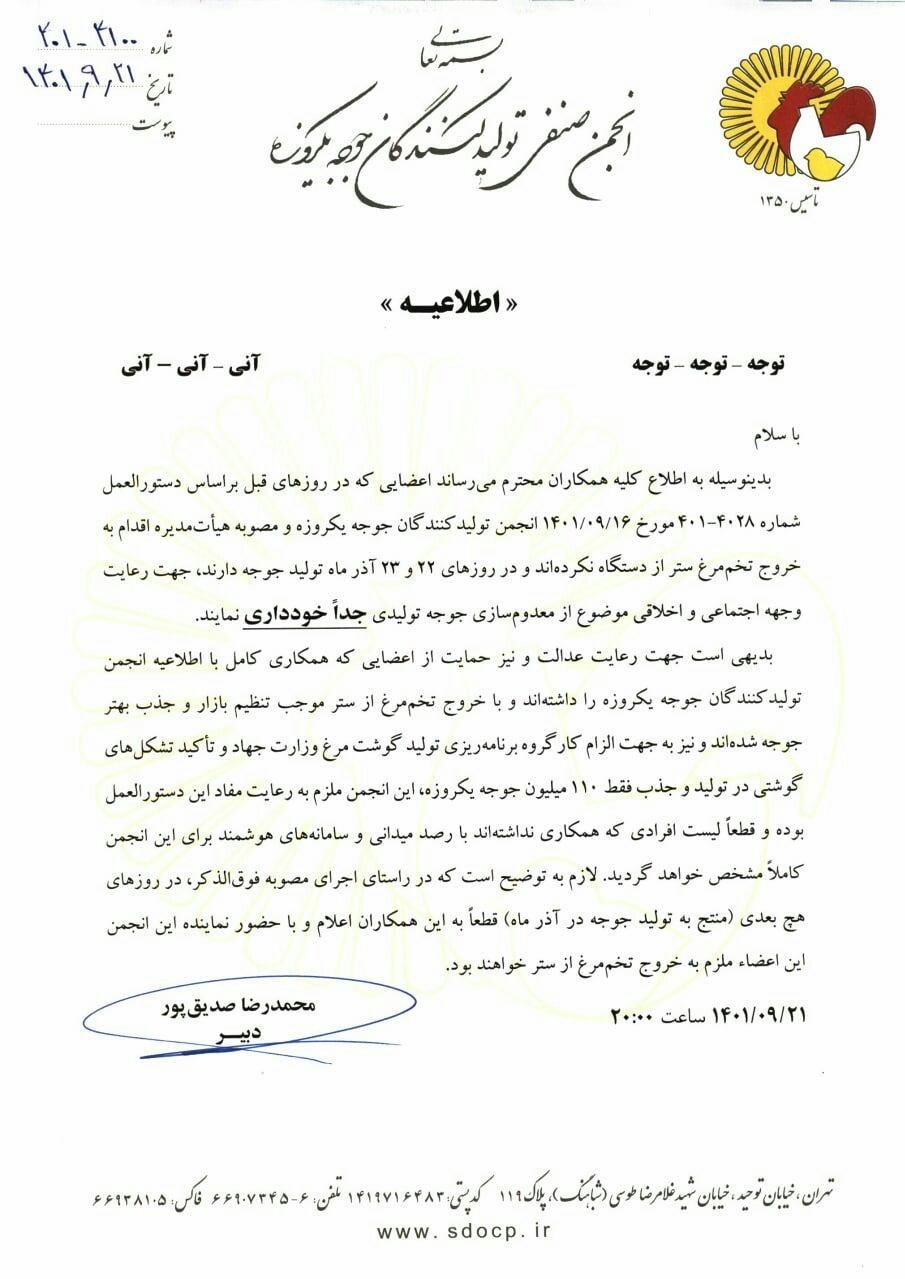 بسمه تعالی
انجمن صنفی تولید کنندگان جوجه یکروزه
تاسیس ۱۳۵۰
شماره ۴۰۱-۴۱۰۰
تاریخ ۱۴۰۱,۹,۲۱
پیوست
« اطلاعیــه »
توجه – توجه – توجه
آنی – آنی – آنی
با سلام
بدینوسیله به اطلاع کلیه همکاران محترم می‌رساند اعضایی که در روزهای قبل براساس دستورالعمل
شماره ۴۰۲۸-۴۰۱ مورخ ۱۴۰۱/۰۹/۱۶ انجمن تولیدکنندگان جوجه یکروزه و مصوبه هیأت‌مدیره اقدام به
خروج تخم‌مرغ ستر از دستگاه نکرده‌اند و در روزهای ۲۲ و ۲۳ آذر ماه تولید جوجه دارند، جهت رعایت
وجهه اجتماعی و اخلاقی موضوع از معدوم‌سازی جوجه تولیدی جداً خودداری نمایند.
بدیهی است جهت رعایت عدالت و نیز حمایت از اعضایی که همکاری کامل با اطلاعیه انجمن
تولیدکنندگان جوجه یکروزه را داشته‌اند و با خروج تخم‌مرغ از ستر موجب تنظیم بازار و جذب بهتر
جوجه شده‌اند و نیز به جهت الزام کارگروه برنامه‌ریزی تولید گوشت مرغ وزارت جهاد و تأکید تشکل‌های
گوشتی در تولید و جذب فقط ۱۱۰ میلیون جوجه یکروزه، این انجمن ملزم به رعایت مفاد این دستورالعمل
بوده و قطعاً لیست افرادی که همکاری نداشته‌اند با رصد میدانی و سامانه‌های هوشمند برای این انجمن
کاملاً مشخص خواهد گردید. لازم به توضیح است که در راستای اجرای مصوبه فوق‌الذکر، در روزهای
هچ بعدی (منتج به تولید جوجه در آذر ماه) قطعاً به این همکاران اعلام و با حضور نماینده این انجمن
این اعضاء ملزم به خروج تخم‌مرغ از ستر خواهند بود.
۱۴۰۱/۰۹/۲۱ ساعت ۲۰:۰۰
محمدرضا صدیق‌پور
دبیــر
تهران، خیابان توحید، خیابان شهید غلامرضا طوسی (شباهنگ)، پلاک ۱۱۹ کدپستی: ۱۴۱۹۷۱۶۴۸۳ تلفن: ۶-۶۶۹۰۷۳۴۵ فاکس: ۶۶۹۳۸۱۰۵
www.sdocp.ir